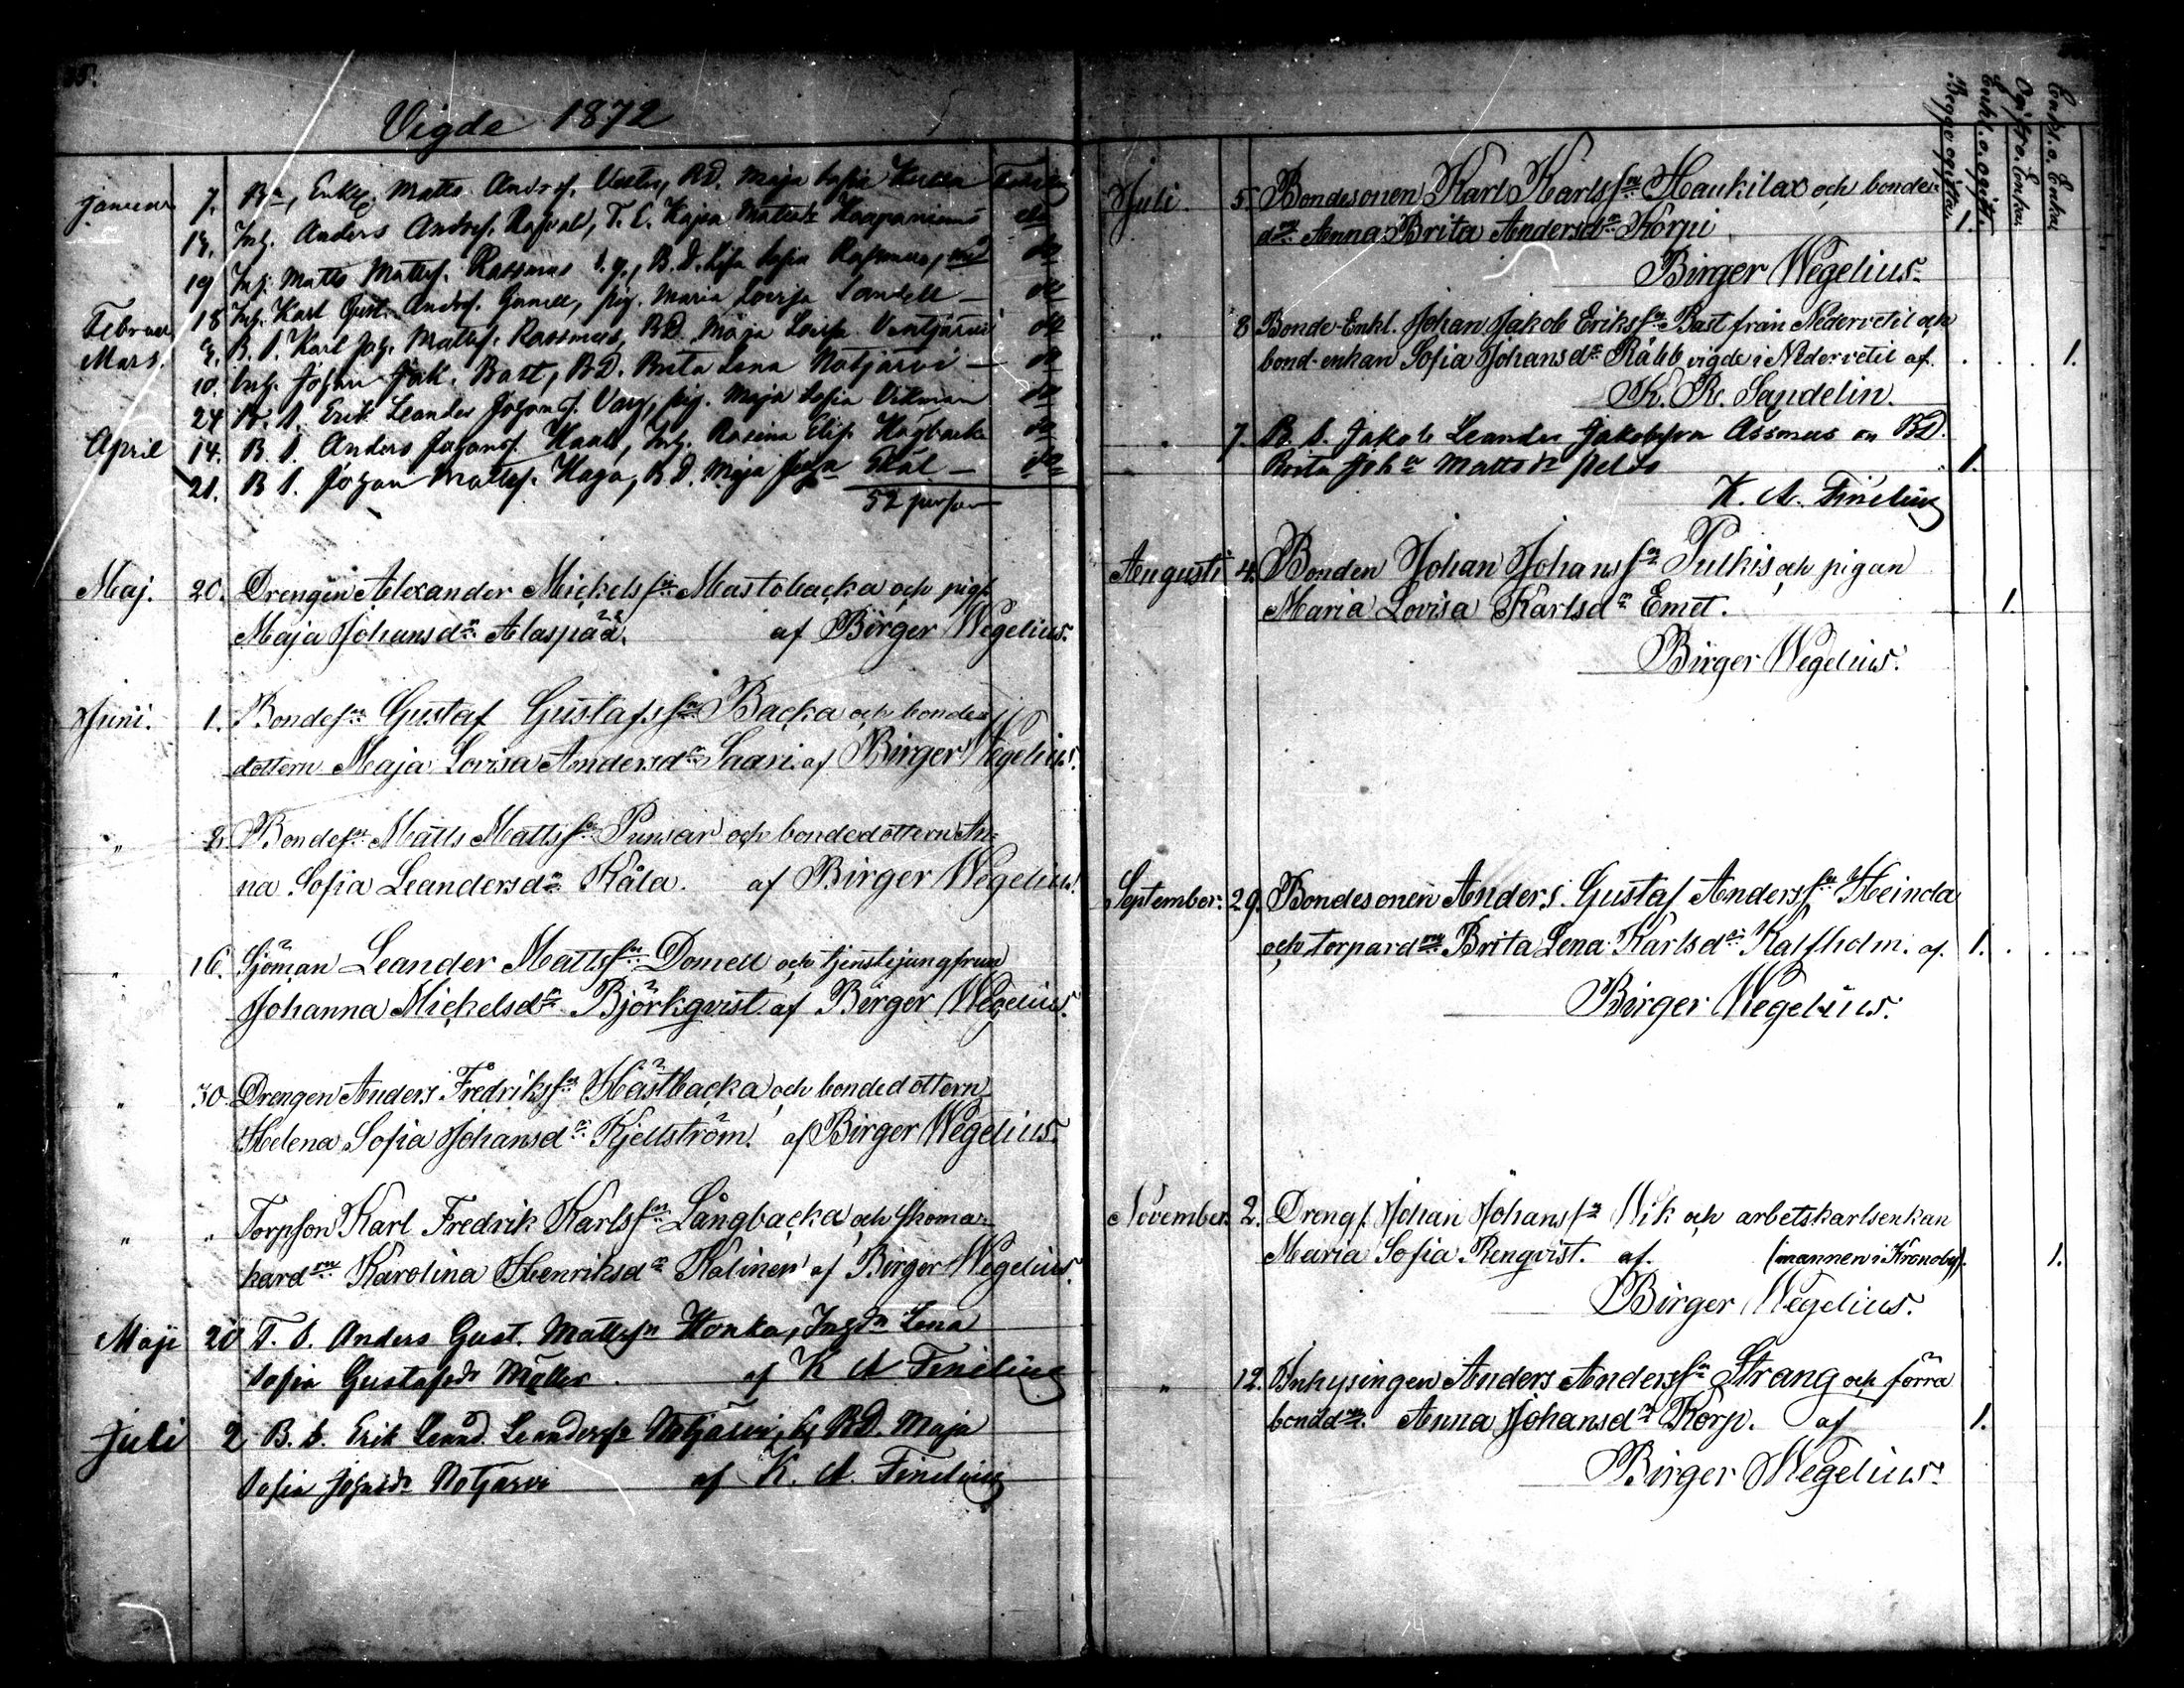 Vigde 1872
Januari 7. Bn, Enkl. Matts Andersf. Vester, BD. Maja Sofia
14. Inh. Anders Andersf. T. E. Kajsa Mattsdr do
19 Inh. Matts Mattsf. Rassmus B.D. Lisa Sofia Rassmus, do
Februari 18 Inh. Karl Gust. Andersf. Gunell, pig. Maria Lovisa Sandell — do
Mars. B. S. Karl Joh. Mattsf. Rassmus, BD. Maja Lovisa do
10. Inh. Johan Jak. Bast, BD. Brita Lena Nätjärvi — do
24 B. S. Erik Leander Johansf. Varg, pig. Maja Sofia Vikman do
April 14. B. S. Anders Johansf. Inh. Rosina Elis. Högbacka do
21. B S. Johan Mattsf. Haga, B D. Maja Skål — do
52 person
Maj. 20. Drengen Alexander Mickelsfn Mastobacka och pig.
Maja Johansdr Alaspää. af Birger Wegelius.
Juni. 1. Bondefn Gustaf Gustafsfn Backa och bonde
dottern Maja Lovisa Andersdr Saari. af Birger Wegelius.
" 2. Bondefn Matts Mattsfn Punsar och bondedottern An-
na Sofia Leandersdr Kåla. af Birger Wegelius.
" 16. Sjöman Leander Mattsfn Domell och tjenstejungfrun
Johanna Mickelsdr Björkqvist af Birger Wegelius.
" 30. Drengen Anders Fredriksfn Hästbacka och bondedottern
Helena Sofia Johansdr Kjellström. af Birger Wegelius.
" " Torpson Karl Fredrik Karlsfn Långbacka och skoma-
kardn Karolina Henriksdr Kalinen af Birger Wegelius.
Maji 20 T. S. Anders Gust. Mattsfn Honka, Ingdr Lena
Sofia Gustafsdr Möller af K A Finelius
Juli 2 B. S. Erik Leand. Leandersfn Notjärvi, BD. Maja
Sofia Johsdr Notjärvi af K. A. Finelius
Begge ogifta.
Enkl. o. ogift.
Ogift o. Enka.
Enkl. o. Enka
Juli. 5. Bondesonen Karl Karlsfn Haukilax och bonde-
dn Anna Brita Andersdr Korpi 1.
Birger Wegelius.
" 8 Bonde-Enkl. Johan Jakob Eriksfn Bast från Nedervetil och
bond-enkan Sofia Johansdr Råbb vigde i Nedervetil af. 1.
K. R. Sandelin.
" 7. B. S. Jakob Leander Jakobsson Åssmus o BD.
Brita Joha Mattsdr 1.
K. A. Finelius
Augusti 4. Bonden Johan Johansfn Pulkis och pigan
Maria Lovisa Karlsdr Emet. 1.
Birger Wegelius.
September. 29. Bondesonen Anders Gustaf Andersfn Heinda
och torpardn Brita Lena Karlsdr Kalfholm. af. 1.
Birger Wegelius.
November. 2. Drengf. Johan Johansfn Wik och arbetskarlsenkan
Maria Sofia Renqvist. af. (mannen i Kronoby). 1.
Birger Wegelius.
" 12. Inhysingen Anders Andersfn Strang och förra
bonddn. Anna Johansdr Korp. af 1.
Birger Wegelius.